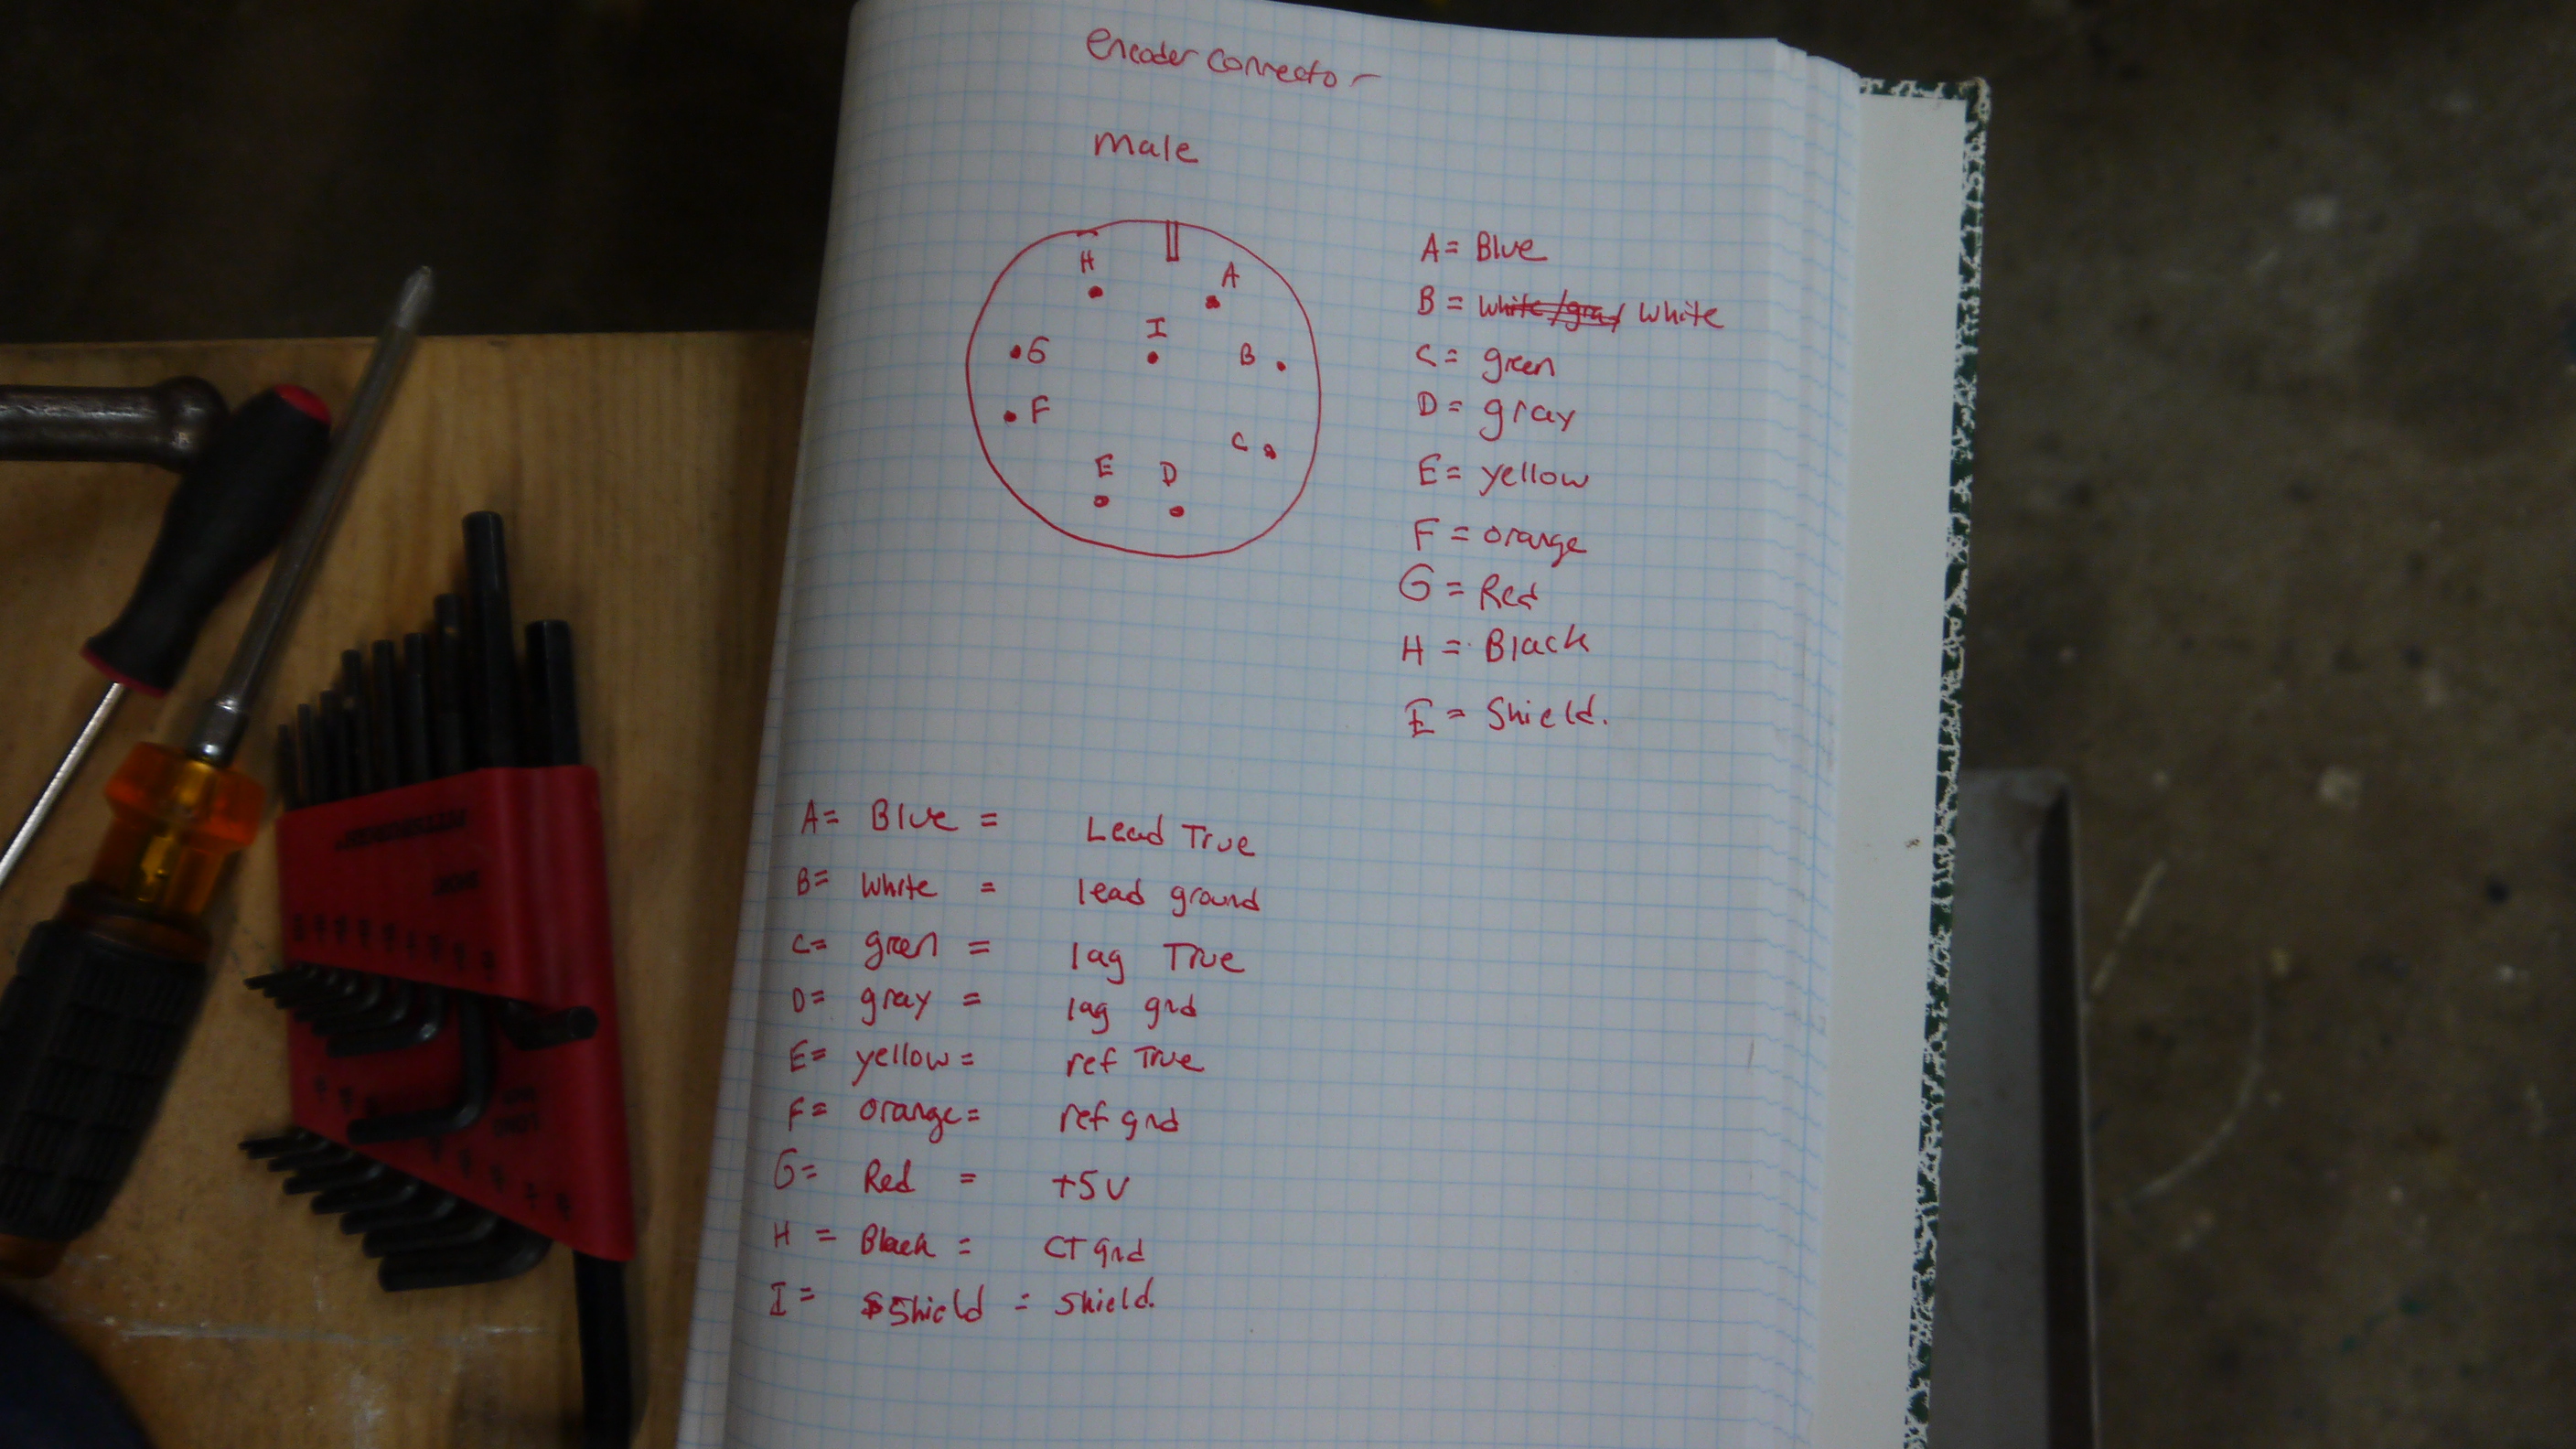 Encoder Connector
Male
H
A
I
G
B
F
C
E
D
A= Blue
B= white/gray white
C= green
D= gray
E= yellow
F= orange
G= Red
H= Black
E= Shield.
A= Blue = Lead True
B= white = lead ground
C= green = lag True
D= gray = lag gnd
E= yellow= ref True
F= orange= ref gnd
G= Red = +5V
H= Black = CT gnd
I= Shield = Shield.
PITTSBURGH
SHORT
LONG